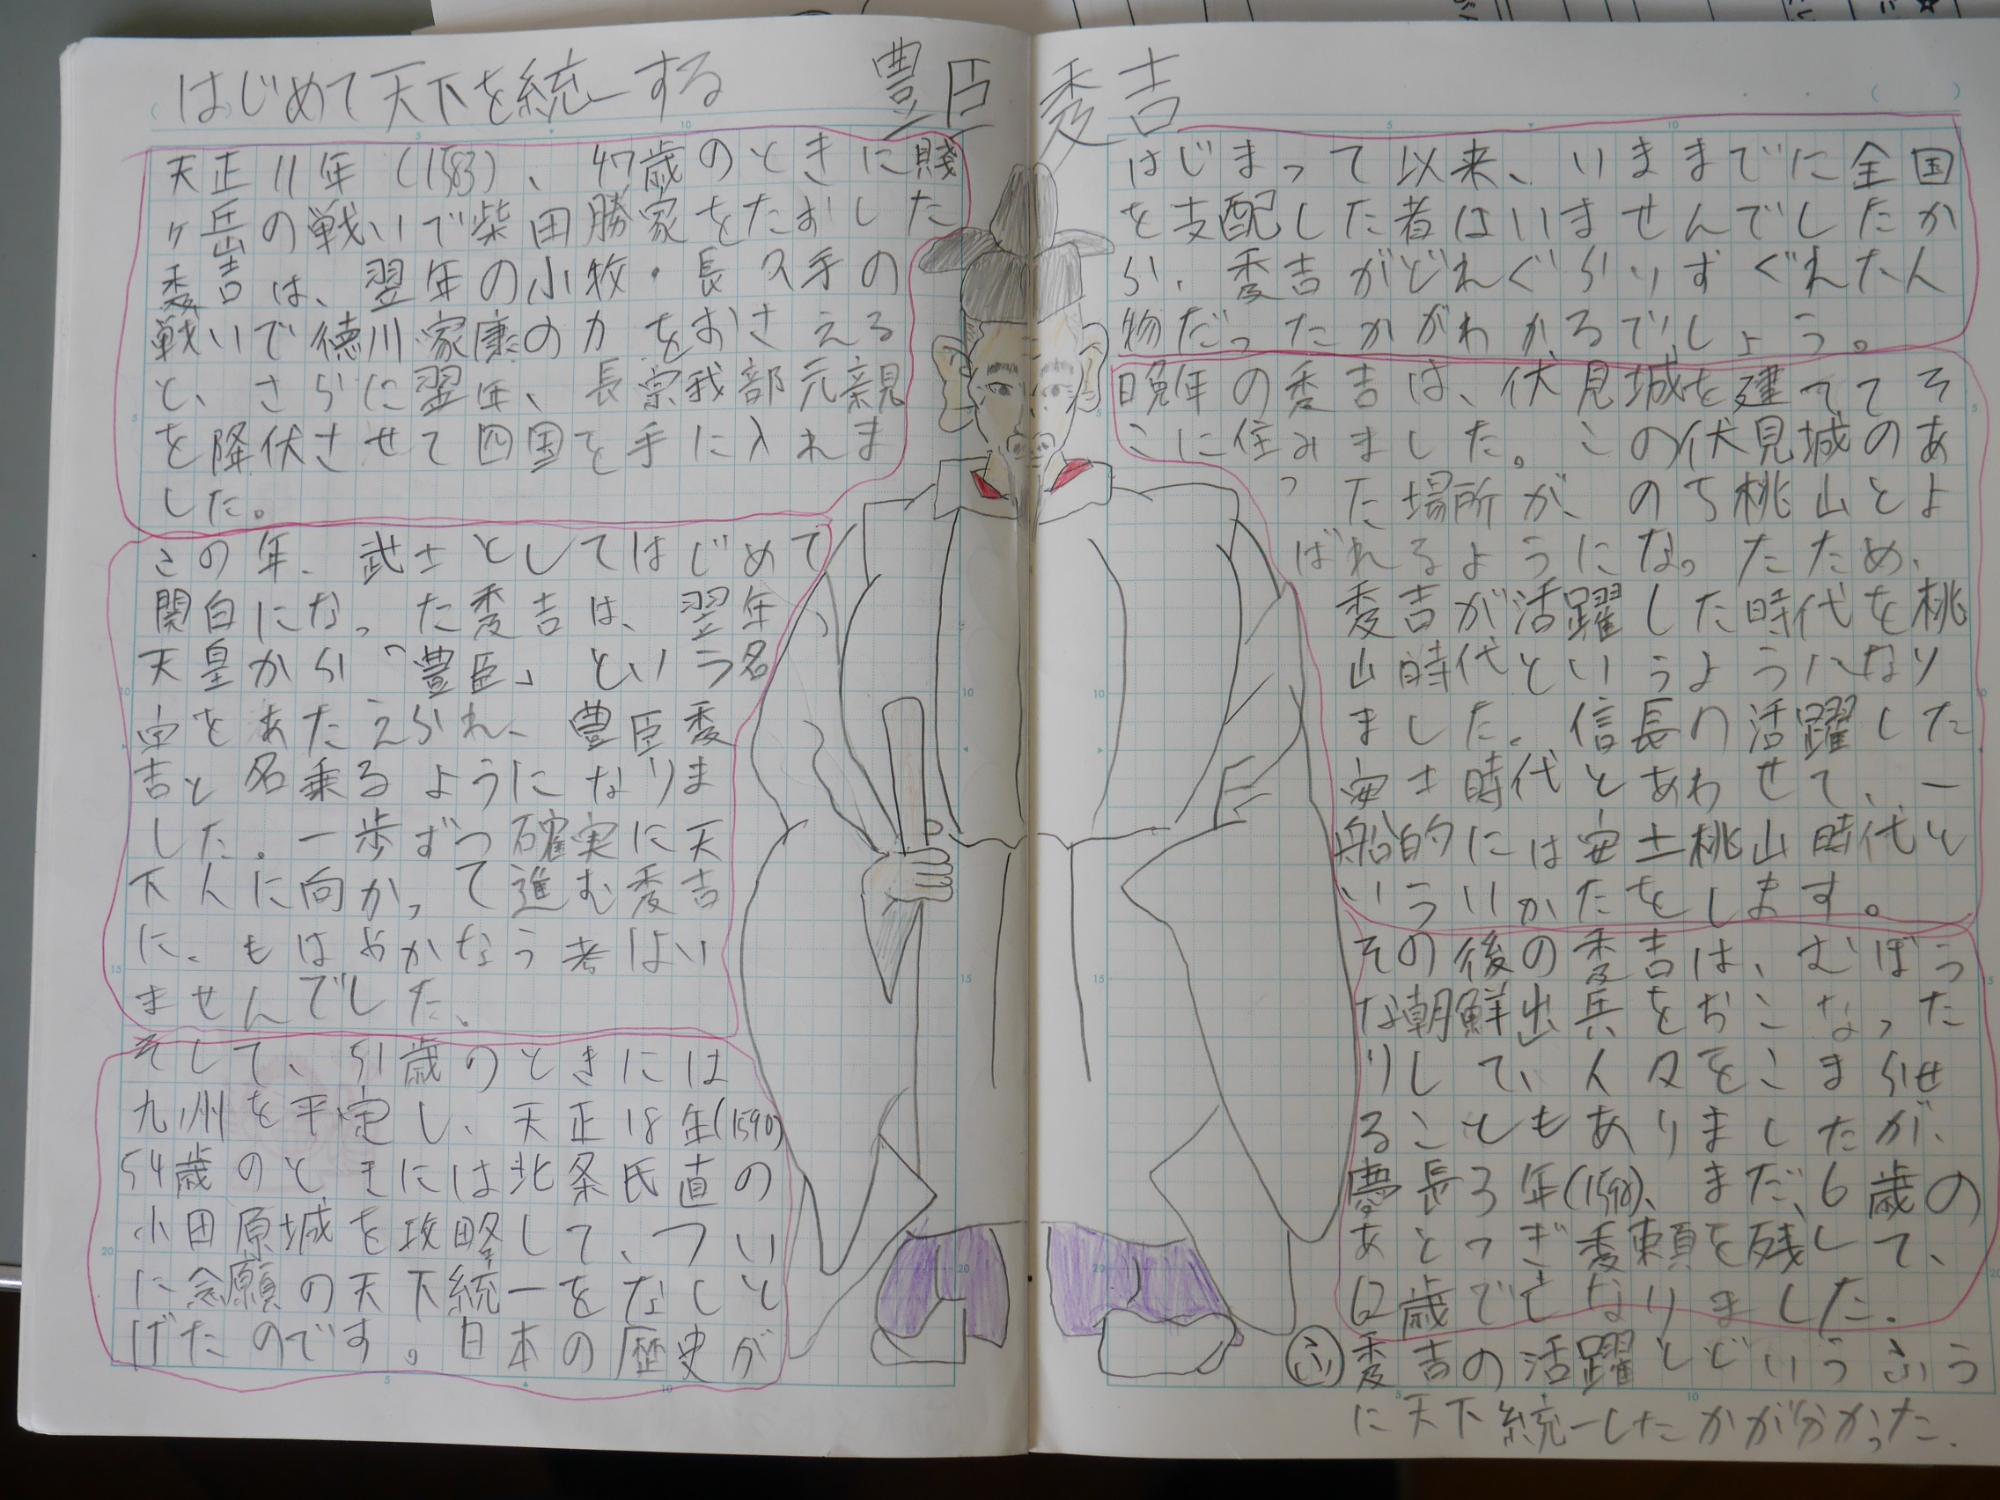 はじめて天下を統一する 豊臣秀吉
天正11年(1583)、47歳のときに賤
ヶ岳の戦いで柴田勝家をたおした
秀吉は、翌年の小牧・長久手の
戦いで徳川家康の力をおさえる
と、さらに翌年、長宗我部元親
を降伏させて四国を手に入れま
した。
この年、武士としてはじめて
関白になった秀吉は、翌年、
天皇から「豊臣」という名
字をあたえられ、豊臣秀
吉と名乗るようになりま
した。一歩ずつ確実に天
下人に向かって進む秀吉
に、もはやかなう者はい
ませんでした。
そして、51歳のときには
九州を平定し、天正18年(1590)
54歳のときには北条氏直の
小田原城を攻略して、つい
に念願の天下統一をなしと
げたのです。日本の歴史が
はじまって以来、いままでに全国
を支配した者はいませんでしたか
ら、秀吉がどれぐらいすぐれた人
物だったかがわかるでしょう。
晩年の秀吉は、伏見城を建ててそ
こに住みました。この伏見城のあ
った場所が、のち桃山とよ
ばれるようになったため、
秀吉が活躍した時代を桃
山時代というようになり
ました。信長の活躍した
安土時代とあわせて、一
船的には安土桃山時代と
いういいかたをします。
その後の秀吉は、むぼう
な朝鮮出兵をおこなった
りして、人々をこまらせ
ることもありましたが、
慶長3年(1598)、まだ、6歳の
あとつぎ秀頼を残して、
62歳で亡なりました。
ふ 秀吉の活躍とどいうふう
に天下統一したかが分かった。